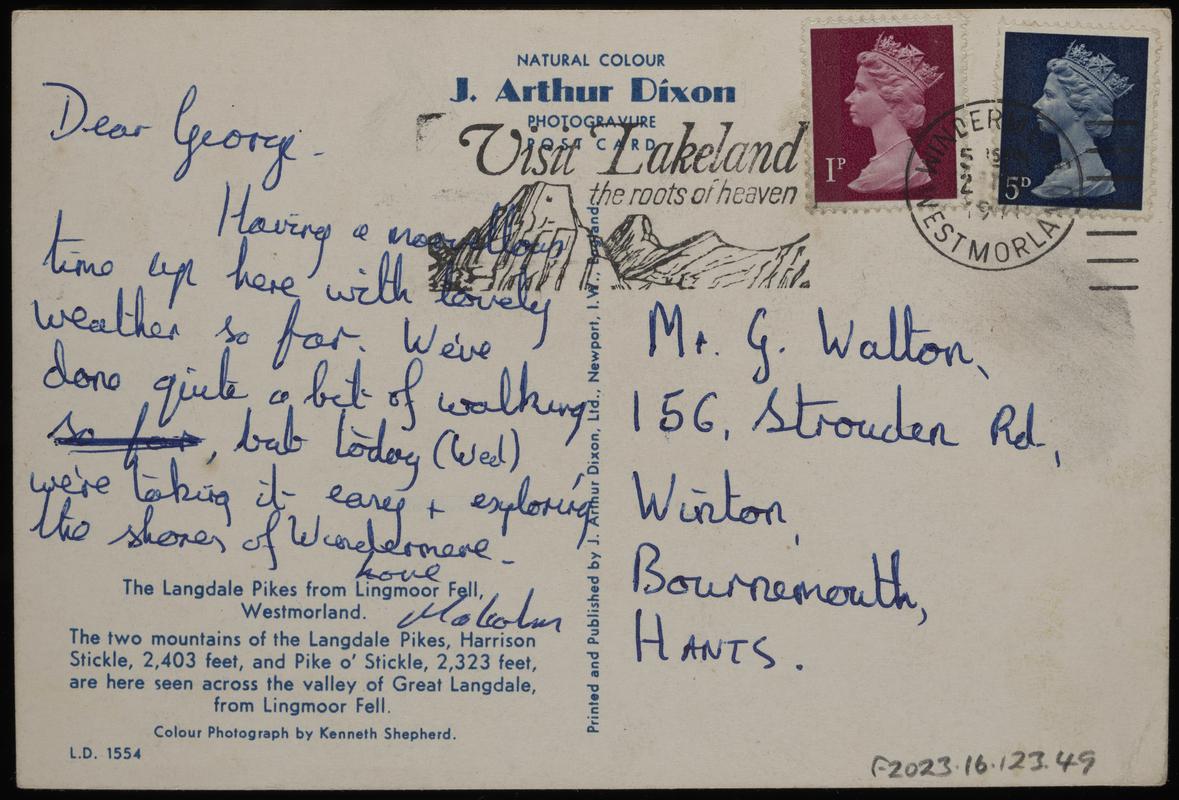 NATURAL COLOUR
J. Arthur Dixon
PHOTOGRAVURE
POST CARD
Visit Lakeland
the roots of heaven
1P
5D
WINDERM
WESTMORLA
Dear George.
Having a marvellous
time up here with lovely
weather so far. We've
done quite a bit of walking
so far, but today (Wed)
we're taking it easy + exploring
the shores of Windermere.
Love
Malcolm
The Langdale Pikes from Lingmoor Fell,
Westmorland.
The two mountains of the Langdale Pikes, Harrison
Stickle, 2,403 feet, and Pike o' Stickle, 2,323 feet,
are here seen across the valley of Great Langdale,
from Lingmoor Fell.
Colour Photograph by Kenneth Shepherd.
L.D. 1554
Printed and Published by J. Arthur Dixon, Ltd., Newport, I.W. England
Mr. G. Walton,
156, Strouden Rd,
Winton,
Bournemouth,
HANTS.
F2023.16.123.49